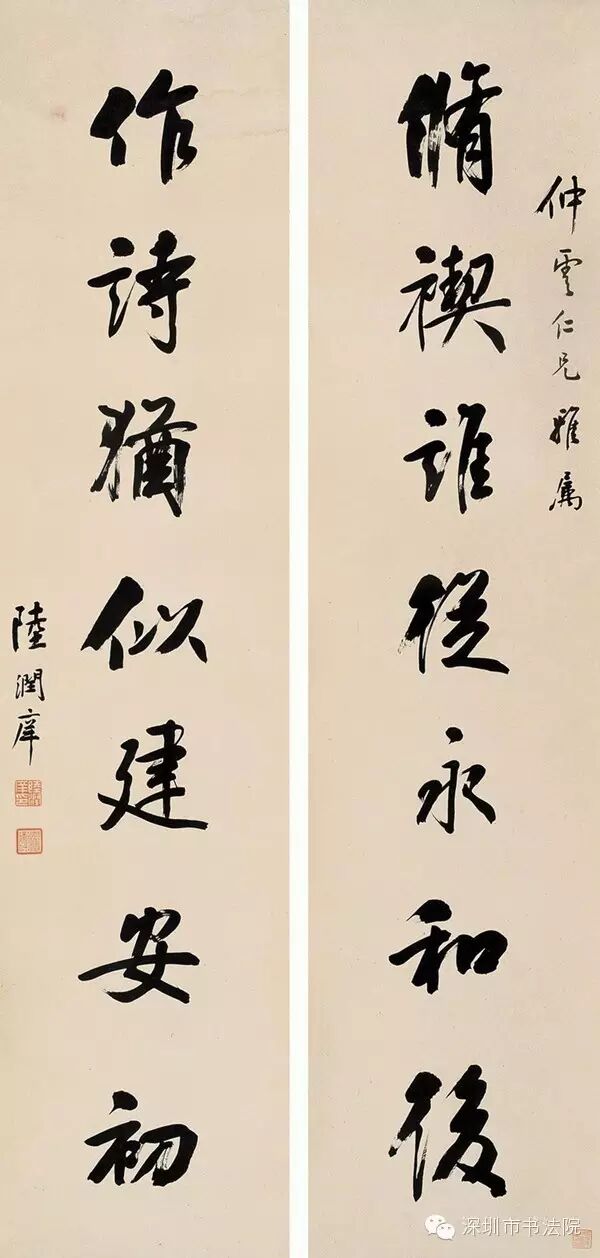 仲雲仁兄雅属
脩禊誰從永和後
作詩猶似建安初
陸潤庠
深圳市书法院